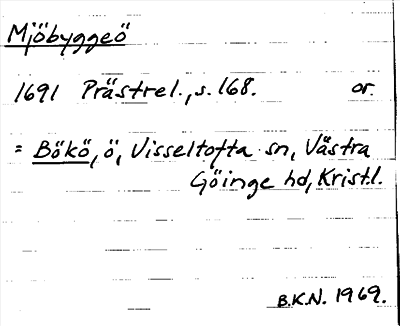 Mjöbyggeö
1691 Prästrel., s. 168. or
= Bökö, ö, Visseltofta sn, Västra
Göinge hd, Krist.l.
B.K.N. 1969.